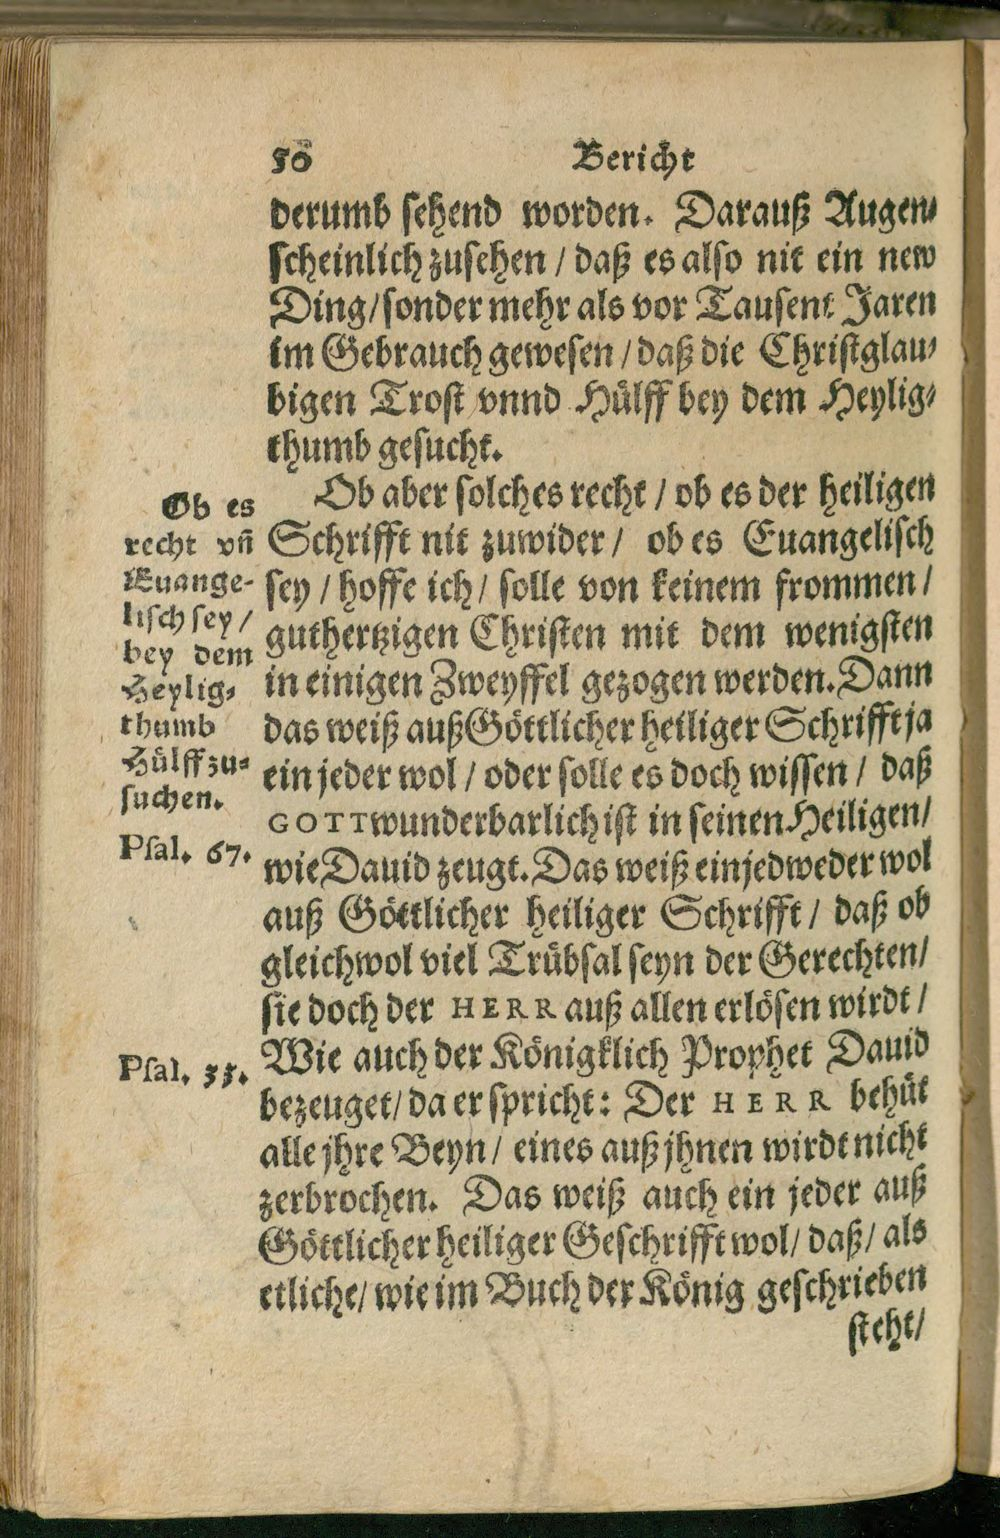 50 Bericht
derumb sehend worden. Darauß Augen-
scheinlich zusehen / daß es also nit ein new
Ding / sonder mehr als vor Tausent Jaren
im Gebrauch gewesen / daß die Christglau-
bigen Trost vnnd Hülff bey dem Heylig-
thumb gesucht.
Ob aber solches recht / ob es der heiligen
Schrifft nit zuwider / ob es Euangelisch
sey / hoffe ich / solle von keinem frommen /
guthertzigen Christen mit dem wenigsten
in einigen Zweyffel gezogen werden. Dann
das weiß auß Göttlicher heiliger Schrifft ja
ein jeder wol / oder solle es doch wissen / daß
GOTT wunderbarlich ist in seinen Heiligen /
wie Dauid zeugt. Das weiß ein jedweder wol
auß Göttlicher heiliger Schrifft / daß ob
gleichwol viel Trübsal seyn der Gerechten /
sie doch der HERR auß allen erlösen wirdt /
Wie auch der Königklich Prophet Dauid
bezeuget / da er spricht: Der HERR behüt
alle jhre Beyn / eines auß jhnen wirdt nicht
zerbrochen. Das weiß auch ein jeder auß
Göttlicher heiliger Geschrifft wol / daß / als
etliche / wie im Buch der König geschrieben
steht /
Ob es
recht vn̄
Euange-
lisch sey /
bey dem
Heylig-
thumb
Hülff zu-
suchen.
Psal. 67.
Psal. 33.